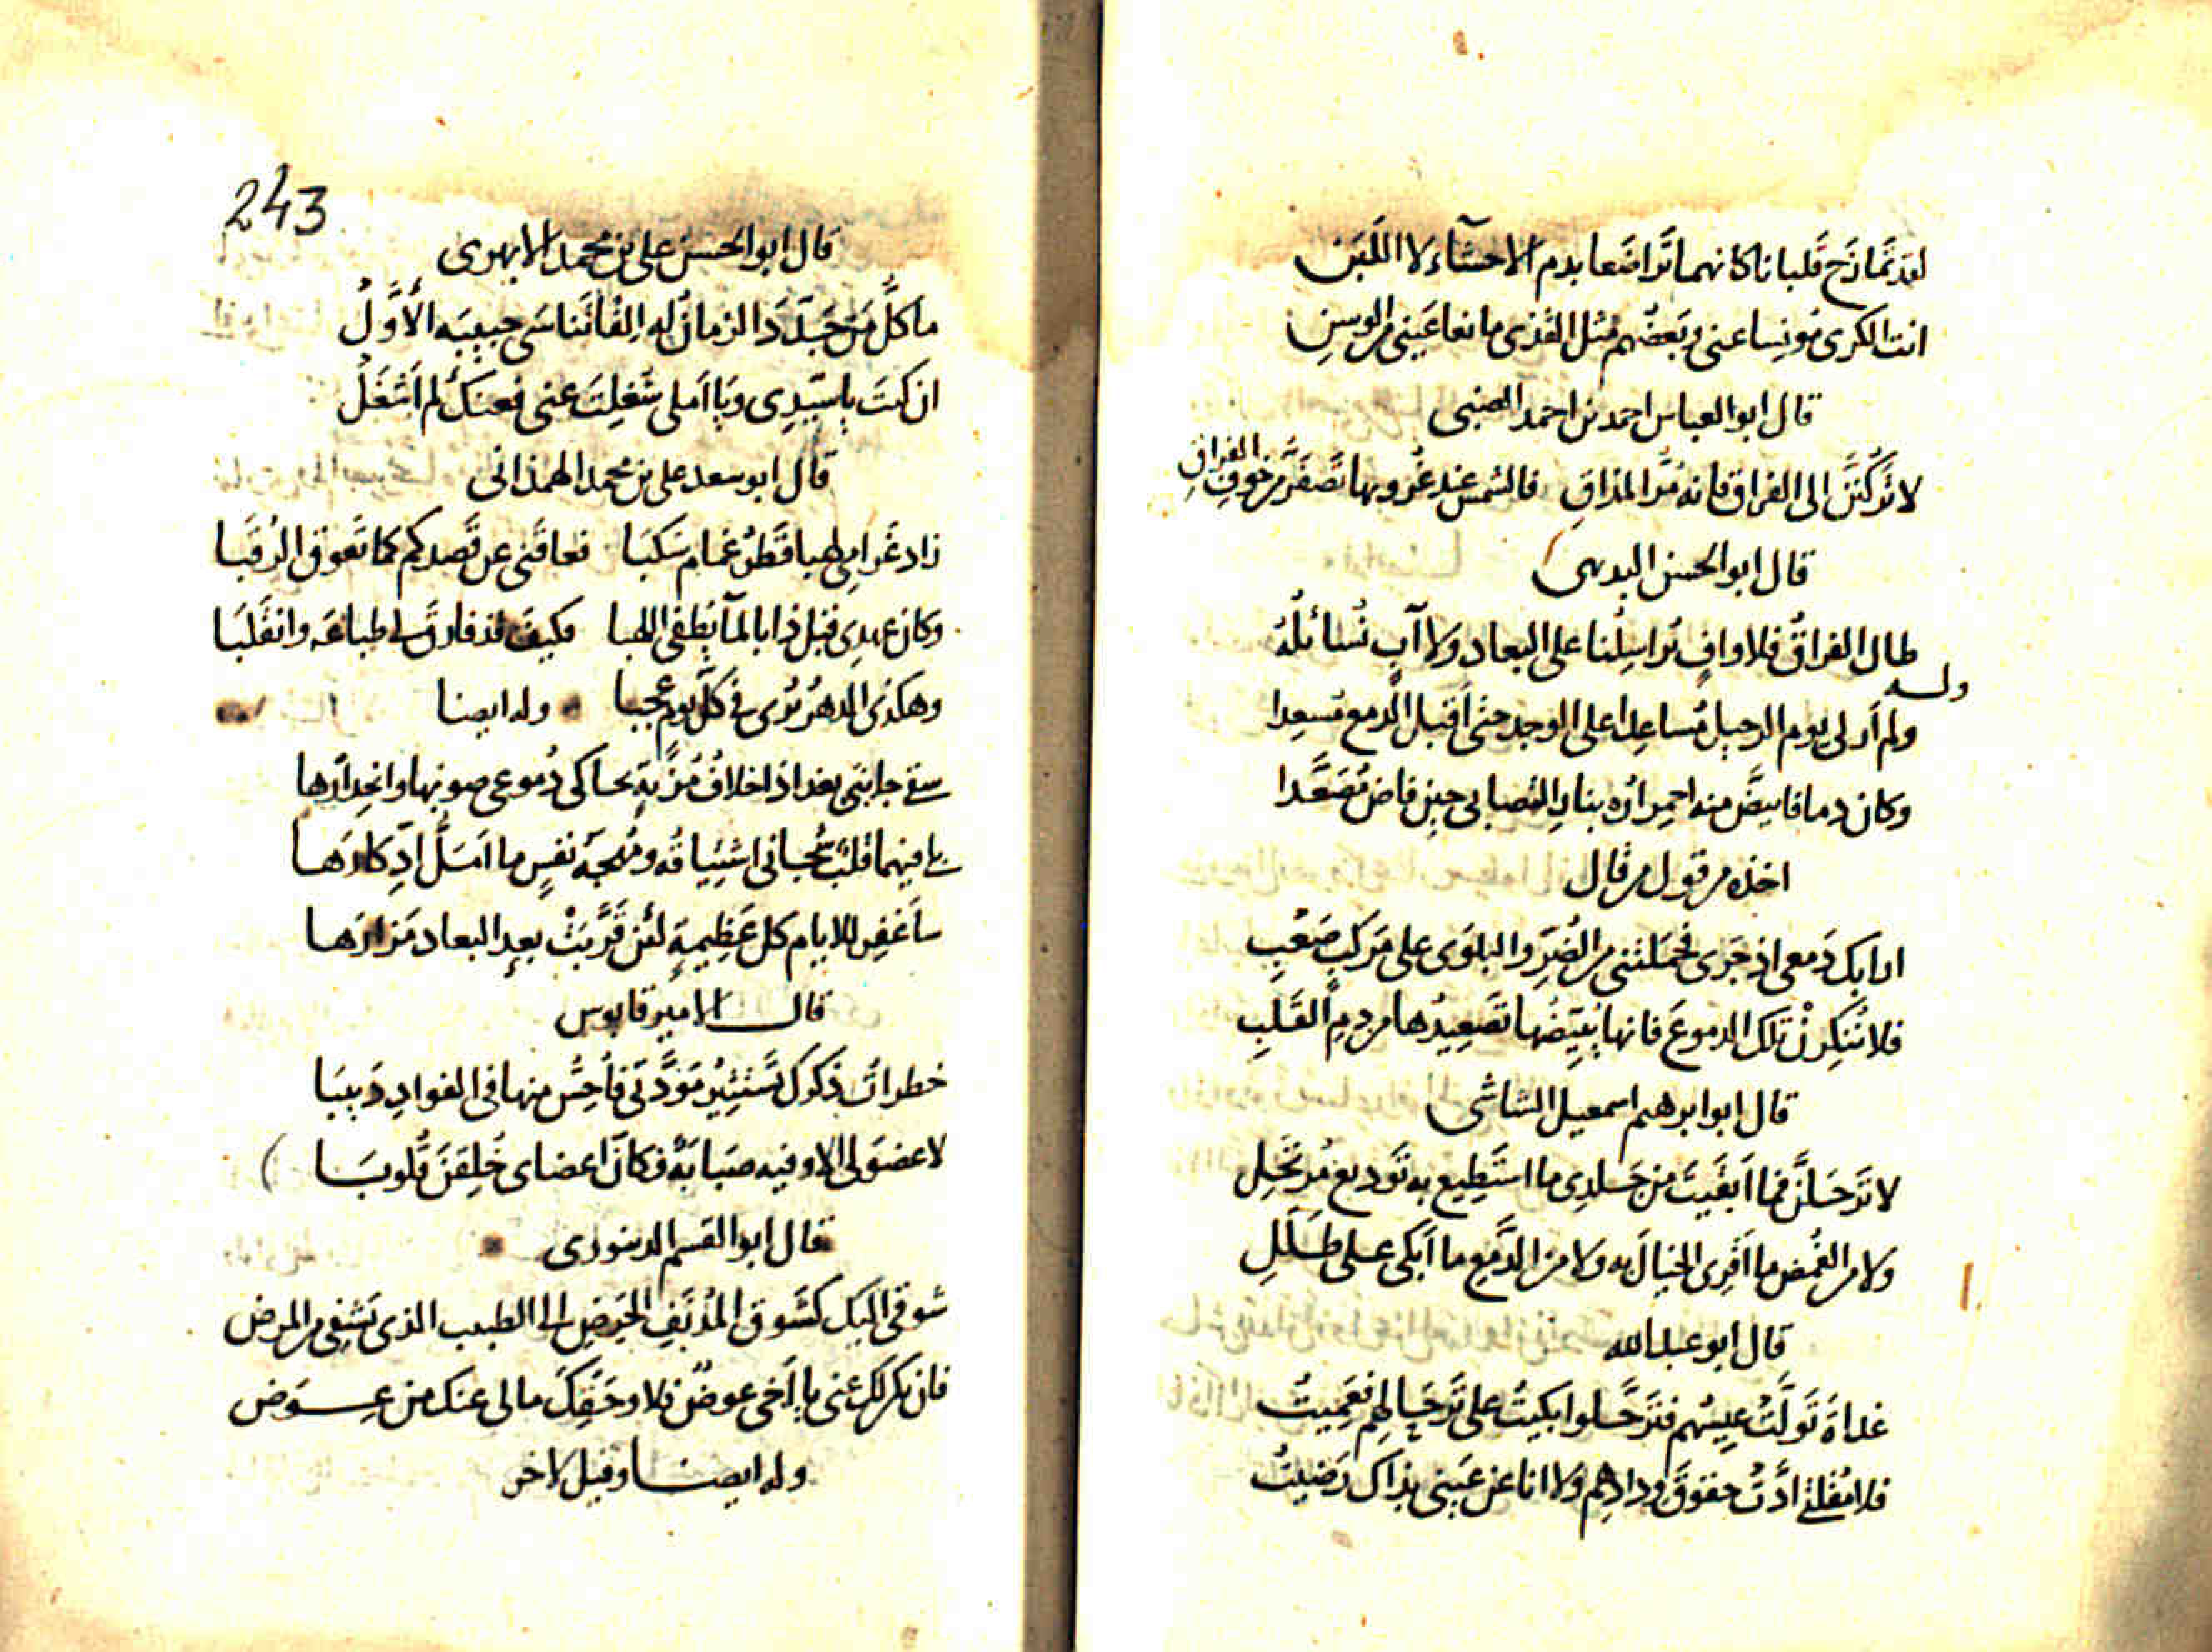 لقد تَمازَج قَلبانا كانهما تَراضَعا بدم الاحشآء لا اللَبَن
انت الكرى مُونِسا عنى وبَعضُهم مثل القَذى مانعا عَينى من الوسنِ
قال ابو العباس احمد بن احمد الضبى
لا تَركُنَنَّ الى الفراق فانه مُرّ المذاقِ فالشمس عند غُروبها تَصفَرّ من خوفِ الفراقِ
قال ابو الحسن البديهى
طال الفراقُ فلا وافٍ تُراسِلُنا على البعاد ولا آبٍ نُسائلُهُ
وله
ولم اَر لى يوم الرحيل مُساعِدا على الوجد حتى اَقبل الدمع مُسعِدا
وكان دما فابيَضَّ منه احمِرارُه بنارِ التصابى حين فاض مُصَعَّدا
اخذه من قول من قال
ارابك دَمعى اذ جَرى فحَمَلتنى من الضُرّ والبلوَى على مَركب صَعْبِ
فلا تُنكِرنْ تلك الدموعَ فانها يُبَيِّضُها تَصعِيدُها من دمِ القَلبِ
قال ابو ابرهيم اسمعيل الشاشى
لا تَرحَلنَّ فما اَبقَيتَ من جَلدى ما استَطِيع به تَودِيعَ مُرتَحِلِ
ولا من الغُمض ما اَقرِى الخيالَ به ولا من الدَمع ما اَبكى على طَلَلِ
قال ابو عبد الله
غداةَ تَولَّتْ عِيسُهم فتَرَحَّلوا بكيتُ على تَرحالهم فعَمِيتُ
فلا مُقلتى ادَّتْ حقوقَ ودادِهم ولا انا عن عَينى بذاك رَضيتُ
243
قال ابو الحسن على بن محمد الابهرى
ما كلُّ مَن جَدّدَ الزمانُ له اِلفًا تَناسَى حبيبَه الأَوَّلُ
ان كنتَ يا سيّدِى ويا اَملى شُغِلتَ عنى فعنكَ لم اُشغَلْ
قال ابو سعد على بن محمد الهمذانى
زاد غَرامِى لهبا قَطرُ غمام سَكبَا فعاقَنى عن قَصدكم كما تَعوق الرُقَبا
وكان عهدِى قبل ذا بالمآ يُطفى اللهبا فكيفَ قد فارق طباعَه وانقَلَبَا
وهكذى الدهرُ يُرى فى كلّ يوم عجبا وله ايضا
سقى جانبَى بغداذ اخلافُ مُزنةٍ تحاكى دُموعى صوبَها وانحِدارَها
فلى فيهما قلبٌ شجانى اشتِياقُه ومُهجَة نفسٍ ما اَمَلَّ ادِّكارَها
ساَغفِر للايام كل عَظِيمةٍ لئن قَرَّبَتْ بعدَ البعاد مَزارَها
قال الامير قابوس
خطراتُ ذكرك تَستَثِيرُ مَوَدَّتى فاُحِسُّ منها فى الفوادِ دَبِيبَا
لا عضوَ لى الا وفيه صَبابَةٌ فكانّ اعضاى خُلِقنَ قُلوبَا
قال ابو القسم الدينورى
شوقى اليك كشَوق المُدنَفِ الحَرَضِ الى الطبيب الذى يَشفِى من المرض
فان يكن لك عنى يا اَخى عوضٌ فلا وحَقِّكَ مالى عنك من عِوَضِ
وله ايضا وقيل لاخر